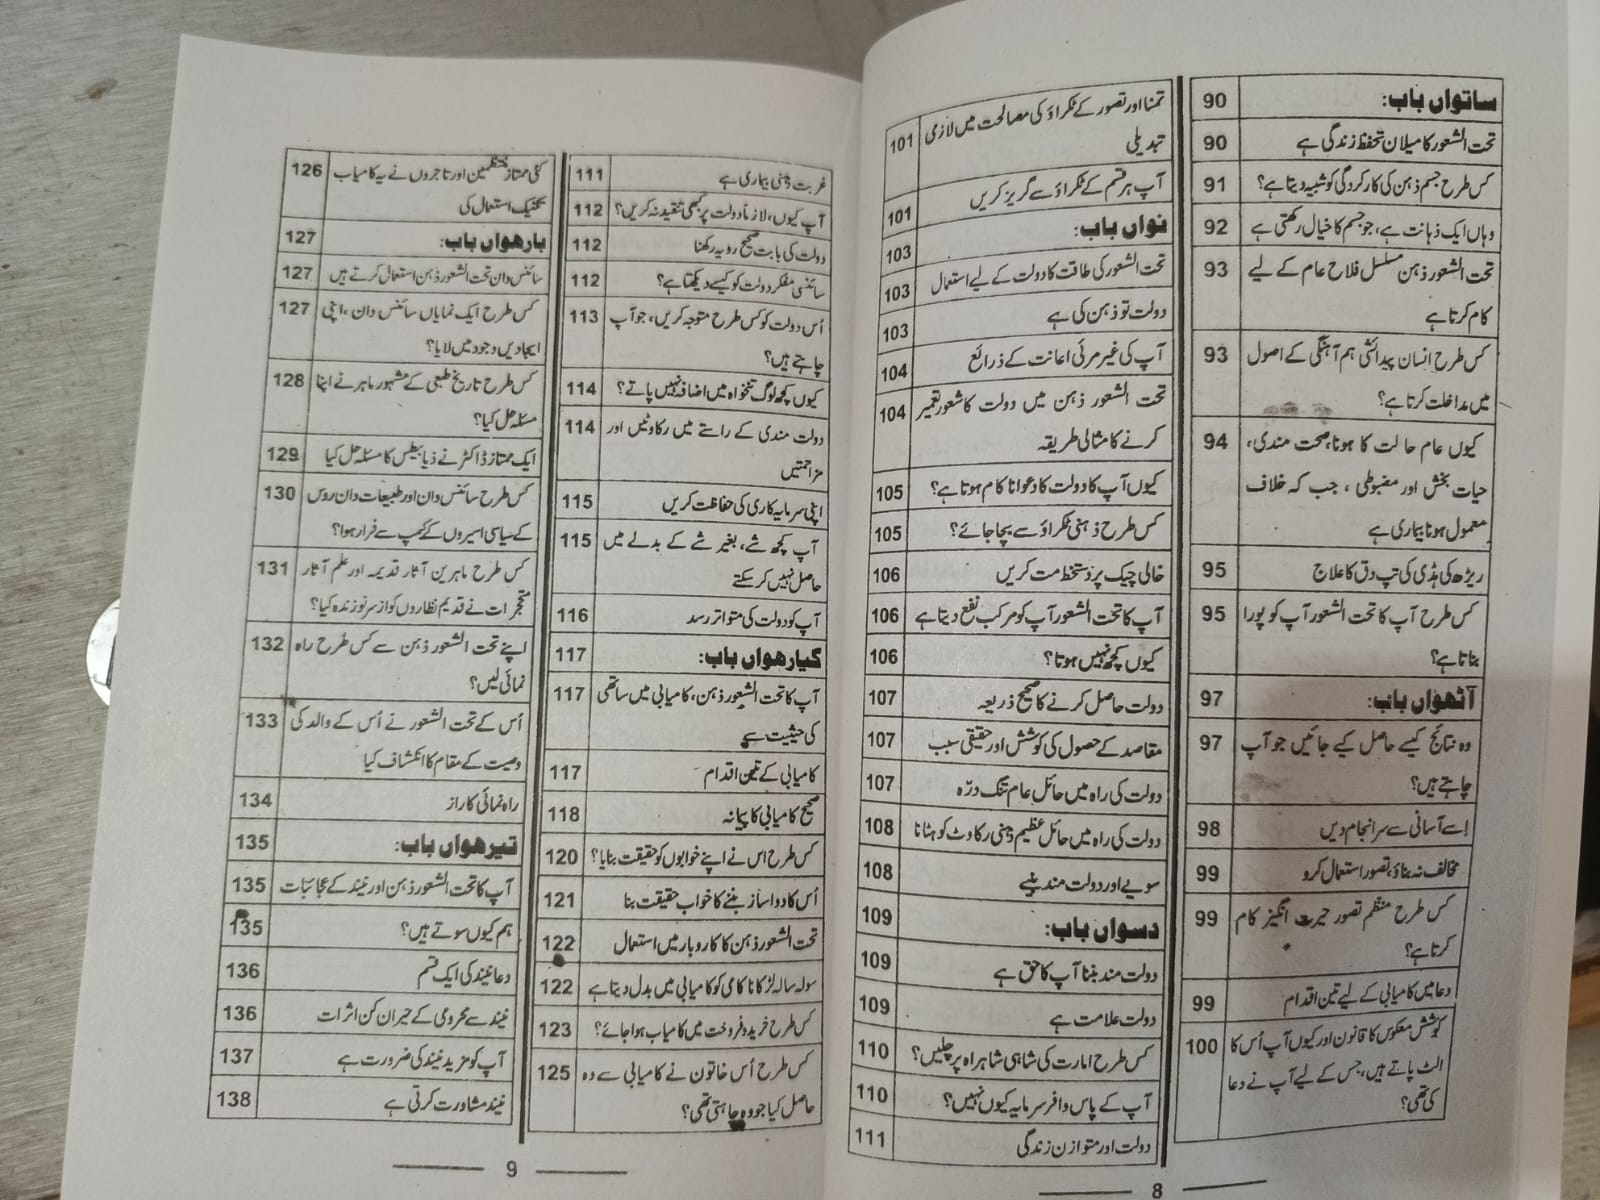 ساتواں باب: 90
تحت الشعور کا میلان تحفظ زندگی ہے 90
کس طرح جسم ذہن کی کارکردگی کو شبیہ دیتا ہے؟ 91
وہاں ایک ذہانت ہے، جو جسم کا خیال رکھتی ہے 92
تحت الشعور ذہن مسلسل فلاح عام کے لیے 93
کام کرتا ہے
کس طرح انسان پیدائشی ہم آہنگی کے اصول 93
میں مداخلت کرتا ہے؟
کیوں عام حالت کا ہونا، صحت مندی، 94
حیات بخش اور مضبوطی ، جب کہ خلاف
معمول ہونا بیماری ہے
ریڑھ کی ہڈی کی تپ دق کا علاج 95
کس طرح آپ کا تحت الشعور آپ کو پورا 95
بناتا ہے؟
آٹھواں باب: 97
وہ نتائج کیسے حاصل کیے جائیں جو آپ 97
چاہتے ہیں؟
اِسے آسانی سے سرانجام دیں 98
مخالف نہ بناؤ، تصور استعمال کرو 99
کس طرح منظم تصور حیرت انگیز کام 99
کرتا ہے؟
دعا میں کامیابی کے لیے تین اقدام 99
کوشش معکوس کا قانون اور کیوں آپ اُس کا 100
الٹ پاتے ہیں، جس کے لیے آپ نے دعا
کی تھی؟
تمنا اور تصور کے ٹکراؤ کی مصالحت میں لازمی 101
تبدیلی
آپ ہر قسم کے ٹکراؤ سے گریز کریں 101
نواں باب: 103
تحت الشعور کی طاقت کا دولت کے لیے استعمال 103
دولت تو ذہن کی ہے 103
آپ کی غیر مرئی اعانت کے ذرائع 104
تحت الشعور ذہن میں دولت کا شعور تعمیر 104
کرنے کا مثالی طریقہ
کیوں آپ کا دولت کا دعوا ناکام ہوتا ہے؟ 105
کس طرح ذہنی ٹکراؤ سے بچا جائے؟ 105
خالی چیک پر دستخط مت کریں 106
آپ کا تحت الشعور آپ کو مرکب نفع دیتا ہے 106
کیوں کچھ نہیں ہوتا؟ 106
دولت حاصل کرنے کا صحیح ذریعہ 107
مقاصد کے حصول کی کوشش اور حقیقی سبب 107
دولت کی راہ میں حائل عام تنگ درّہ 107
دولت کی راہ میں حائل عظیم ذہنی رکاوٹ کو ہٹانا 108
سویے اور دولت مند بنیے 108
دسواں باب: 109
دولت مند بننا آپ کا حق ہے 109
دولت علامت ہے 109
کس طرح امارت کی شاہی شاہراہ پر چلیں؟ 110
آپ کے پاس وافر سرمایہ کیوں نہیں؟ 110
دولت اور متوازن زندگی 111
8
غربت ذہنی بیماری ہے 111
آپ کیوں، لازماً دولت پر کبھی تنقید نہ کریں؟ 112
دولت کی بابت صحیح رویہ رکھنا 112
سائنسی مفکر دولت کو کیسے دیکھتا ہے؟ 112
اُس دولت کو کس طرح متوجہ کریں، جو آپ 113
چاہتے ہیں؟
کیوں کچھ لوگ تنخواہ میں اضافہ نہیں پاتے؟ 114
دولت مندی کے راستے میں رکاوٹیں اور 114
مزاحمتیں
اپنی سرمایہ کاری کی حفاظت کریں 115
آپ کچھ شے، بغیر شے کے بدلے میں 115
حاصل نہیں کر سکتے
آپ کو دولت کی متواتر رسد 116
گیارھواں باب: 117
آپ کا تحت الشعور ذہن، کامیابی میں ساتھی 117
کی حیثیت سے
کامیابی کے تین اقدام 117
صحیح کامیابی کا پیمانہ 118
کس طرح اس نے اپنے خوابوں کو حقیقت بنایا؟ 120
اُس کا دوا ساز بننے کا خواب حقیقت بنا 121
تحت الشعور ذہن کا کاروبار میں استعمال 122
سولہ سالہ لڑکا ناکامی کو کامیابی میں بدل دیتا ہے 122
کس طرح خرید و فروخت میں کامیاب ہوا جائے؟ 123
کس طرح اُس خاتون نے کامیابی سے وہ 125
حاصل کیا جو وہ چاہتی تھی؟
کئی ممتاز منتظمین اور تاجروں نے یہ کامیاب 126
تکنیک استعمال کی
بارھواں باب: 127
سائنس دان تحت الشعور ذہن استعمال کرتے ہیں 127
کس طرح ایک نمایاں سائنس دان ، اپنی 127
ایجادیں وجود میں لایا؟
کس طرح تاریخ طبیعی کے مشہور ماہر نے اپنا 128
مسئلہ حل کیا؟
ایک ممتاز ڈاکٹر نے ذیابیطس کا مسئلہ حل کیا 129
کس طرح سائنس دان اور طبیعات دان روس 130
کے سیاسی اسیروں کے کیمپ سے فرار ہوا؟
کس طرح ماہرین آثار قدیمہ اور علم آثار 131
متحجرات نے قدیم نظاروں کو از سر نو زندہ کیا؟
اپنے تحت الشعور ذہن سے کس طرح راہ 132
نمائی لیں؟
اُس کے تحت الشعور نے اُس کے والد کی 133
وصیت کے مقام کا انکشاف کیا
راہ نمائی کا راز 134
تیرھواں باب: 135
آپ کا تحت الشعور ذہن اور نیند کے عجائبات 135
ہم کیوں سوتے ہیں؟ 135
دعا نیند کی ایک قسم 136
نیند سے محرومی کے حیران کن اثرات 136
آپ کو مزید نیند کی ضرورت ہے 137
نیند مشاورت کرتی ہے 138
9